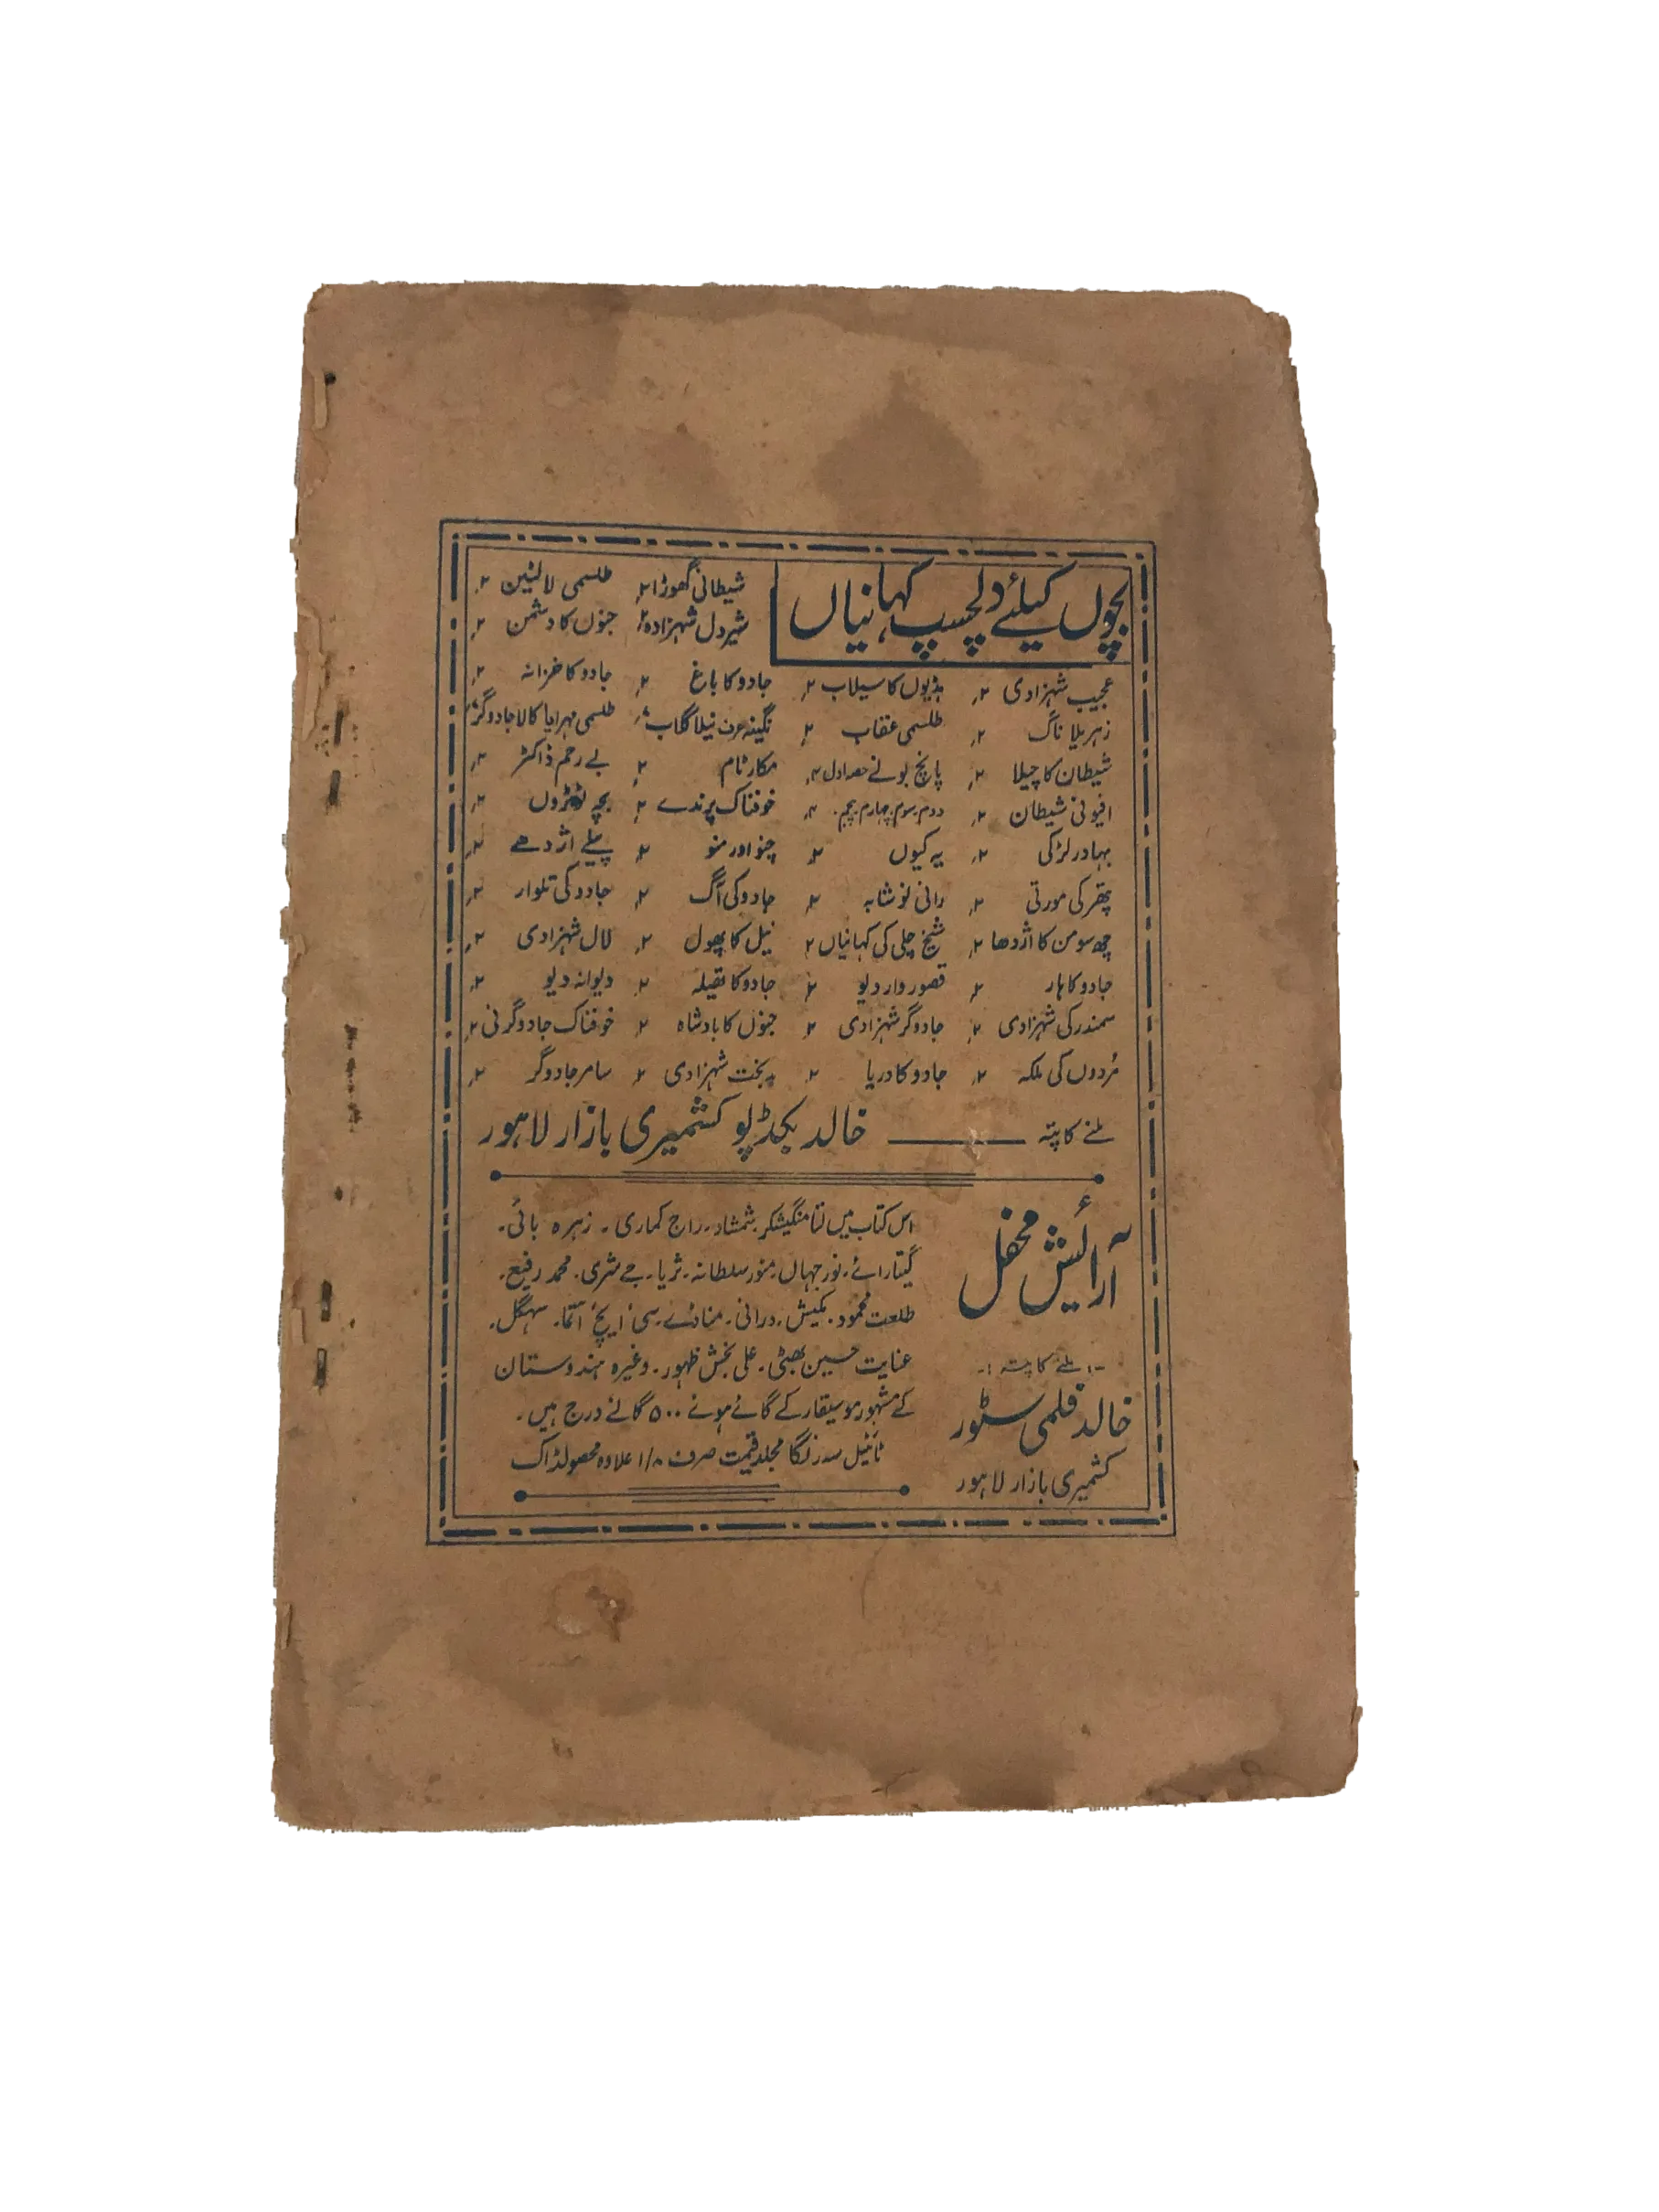 بچوں کیلئے دلچسپ کہانیاں
شیطانی گھوڑا ۲ر طلسمی لالٹین ۲ر
شیر دل شہزادہ ۲ر جنوں کا دشمن ۲ر
عجیب شہزادی ۲ر ہڈیوں کا سیلاب ۲ر جادو کا باغ ۲ر جادو کا خزانہ ۲ر
زہریلا ناگ ۲ر طلسمی عقاب ۲ر نگینہ عرف نیلا گلاب طلسمی مہرا یا کالا جادوگر
شیطان کا چیلا ۲ر پانچ بونے حصہ اول ۴ر مکار ٹام ۲ر بے رحم ڈاکٹر ۲ر
افیونی شیطان ۲ر دوم۔ سوم۔ چہارم۔ پنجم۔ ۴ر خوفناک پرندے ۲ر بچہ ۲ر
بہادر لڑکی ۲ر یہ کیوں ۲ر چنو اور منو ۲ر پیلے اژدھے ۲ر
پتھر کی مورتی ۲ر رانی نوشابہ ۲ر جادو کی آگ ۲ر جادو کی تلوار ۲ر
چھ سو من کا اژدھا ۲ر شیخ چلی کی کہانیاں ۲ نیل کا پھول ۲ر لال شہزادی ۲ر
جادو کا ہار ۲ر قصور وار دیو ۲ر جادو کا تھیلہ ۲ر دیوانہ دیو ۲ر
سمندر کی شہزادی ۲ر جادوگر شہزادی ۲ر جنوں کا بادشاہ ۲ر خوفناک جادوگرنی ۲ر
مُردوں کی ملکہ ۲ر جادو کا دریا ۲ر بدبخت شہزادی ۲ر سامر جادوگر ۲ر
ملنے کا پتہ ــــــ خالد بکڈپو کشمیری بازار لاہور
آرائش محفل
-: ملنے کا پتہ :-
خالد فلمی سٹور
کشمیری بازار لاہور
اس کتاب میں لتا منگیشکر۔ شمشاد۔ راج کماری۔ زہرہ بائی۔
گیتا رائے۔ نور جہاں۔ منور سلطانہ۔ ثریا۔ جے شری۔ محمد رفیع۔
طلعت محمود۔ مکیش۔ درانی۔ مناڈے۔ سی ایچ آتما۔ سہگل۔
عنایت حسین بھٹی۔ علی بخش ظہور۔ وغیرہ ہندوستان
کے مشہور موسیقار کے گائے ہوئے ۵۰۰ گانے درج ہیں۔
ٹائیٹل سہ رنگا مجلد قیمت صرف ۱/۸ علاوہ محصولڈاک